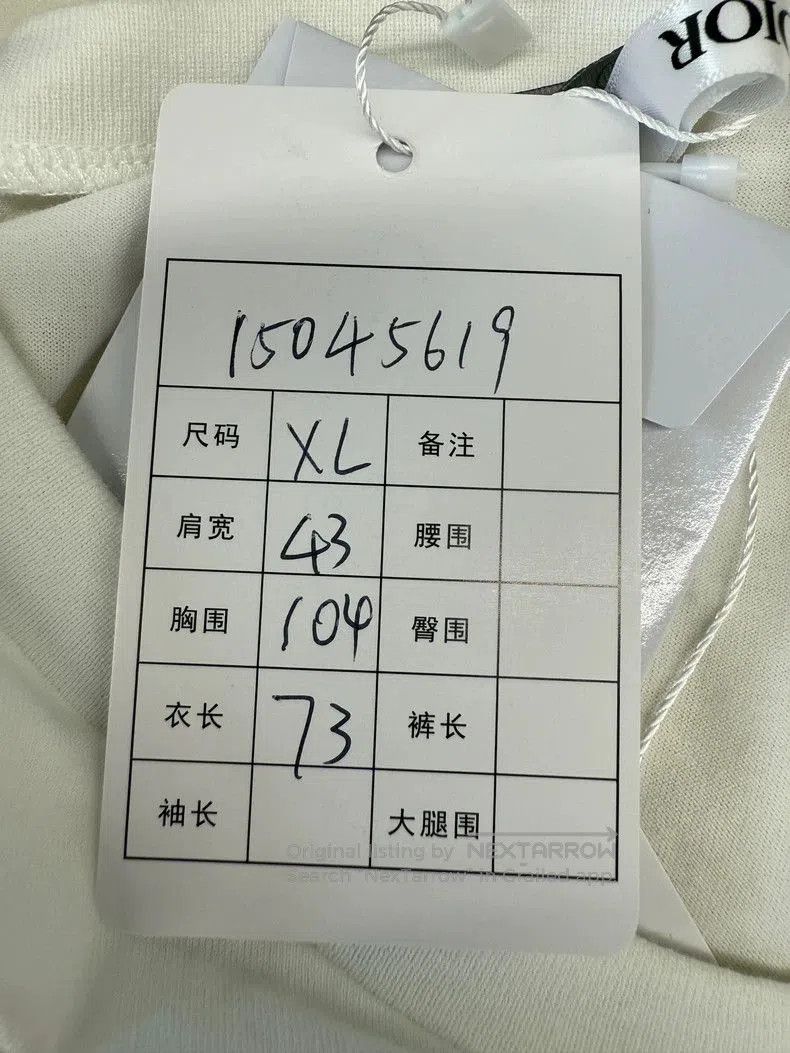 DIOR
15045619
尺码 XL 备注
肩宽 43 腰围
胸围 104 臀围
衣长 73 裤长
袖长 大腿围
Original listing by NEXTARROW
search "NexTarrow" in Grailed app